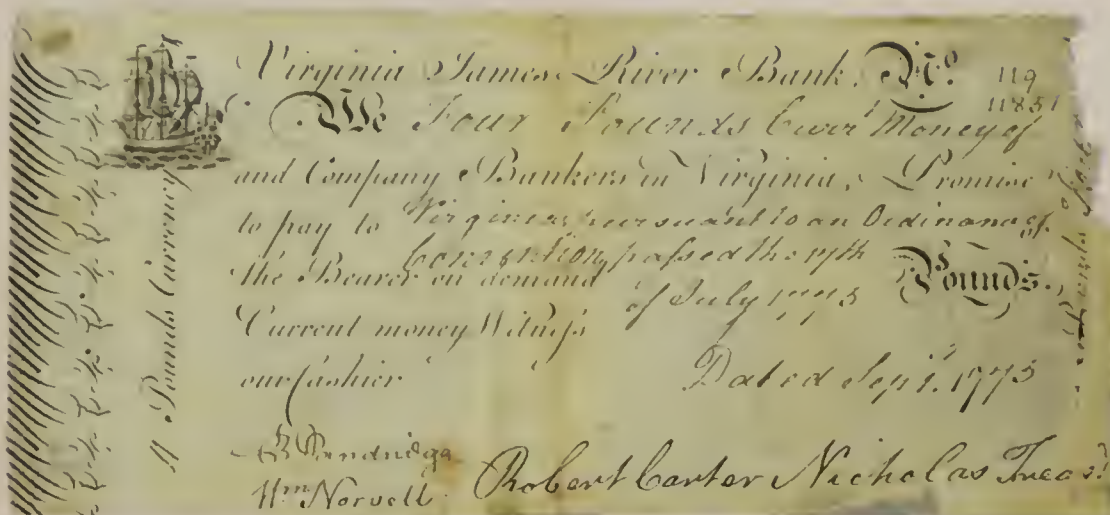 Virginia James River Bank. No. 119
11851
We Four Pounds Curr.t Money of
and Company Bankers in Virginia, Promise
to pay to Virginia, pursuant to an Ordinance of
Convention, passed the 17th
the Bearer on demand
of July 1775 Pounds.
Current money Witness
our Cashier
Dated Sept. 1. 1775
B Dandridge
Wm Norvell. Robert Carter Nicholas Treas.r
4 Pounds Currency